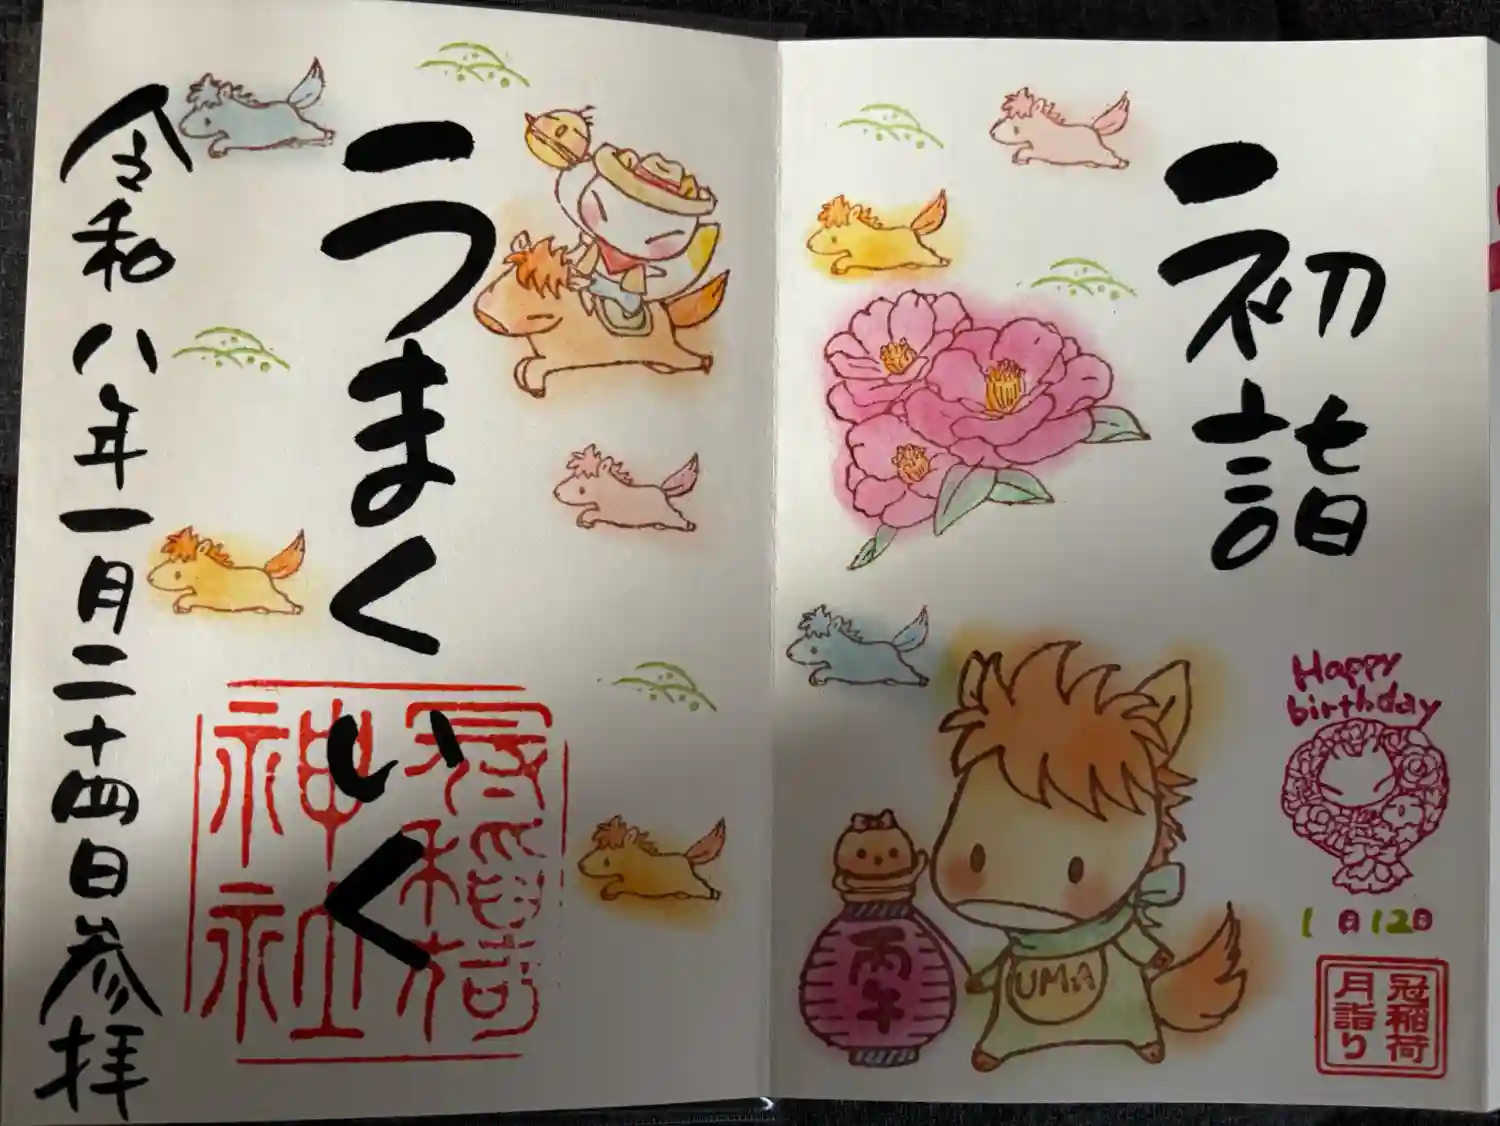 初詣
Happy
birthday
1月12日
冠稲荷
月詣り
UMA
丙午
うまくいく
冠稲荷
神社
令和八年一月二十四日参拝